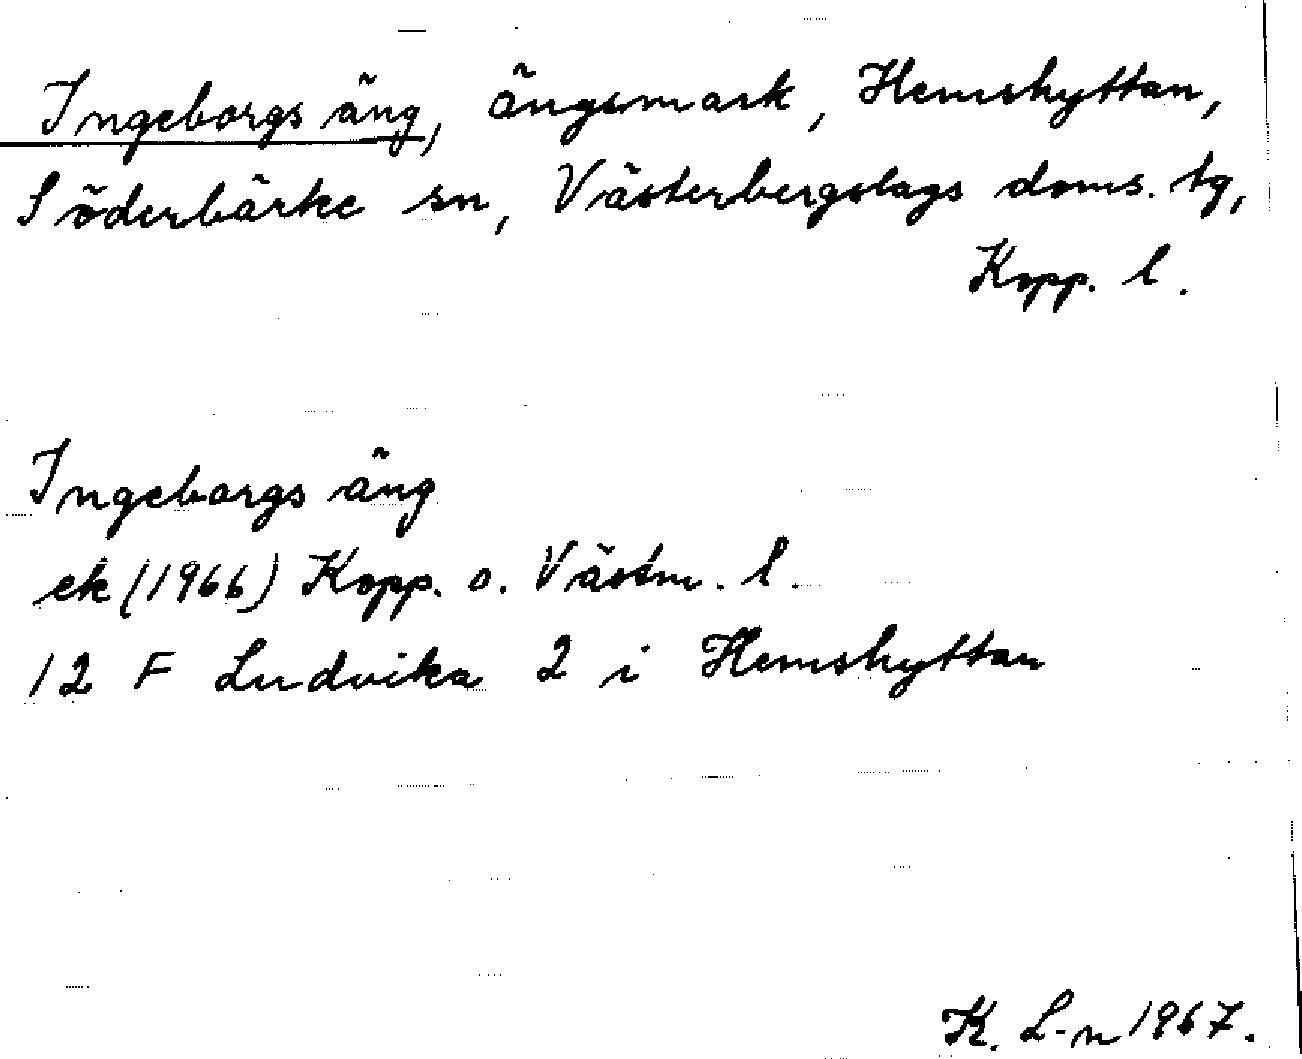 Ingeborgs äng, ängsmark, Hemshyttan,
Söderbärke sn, Västerbergslags doms. tg,
Kopp. l.
Ingeborgs äng
ek (1966) Kopp. o. Västm. l.
12 F Ludvika 2 i Hemshyttan
K. L-n 1967.